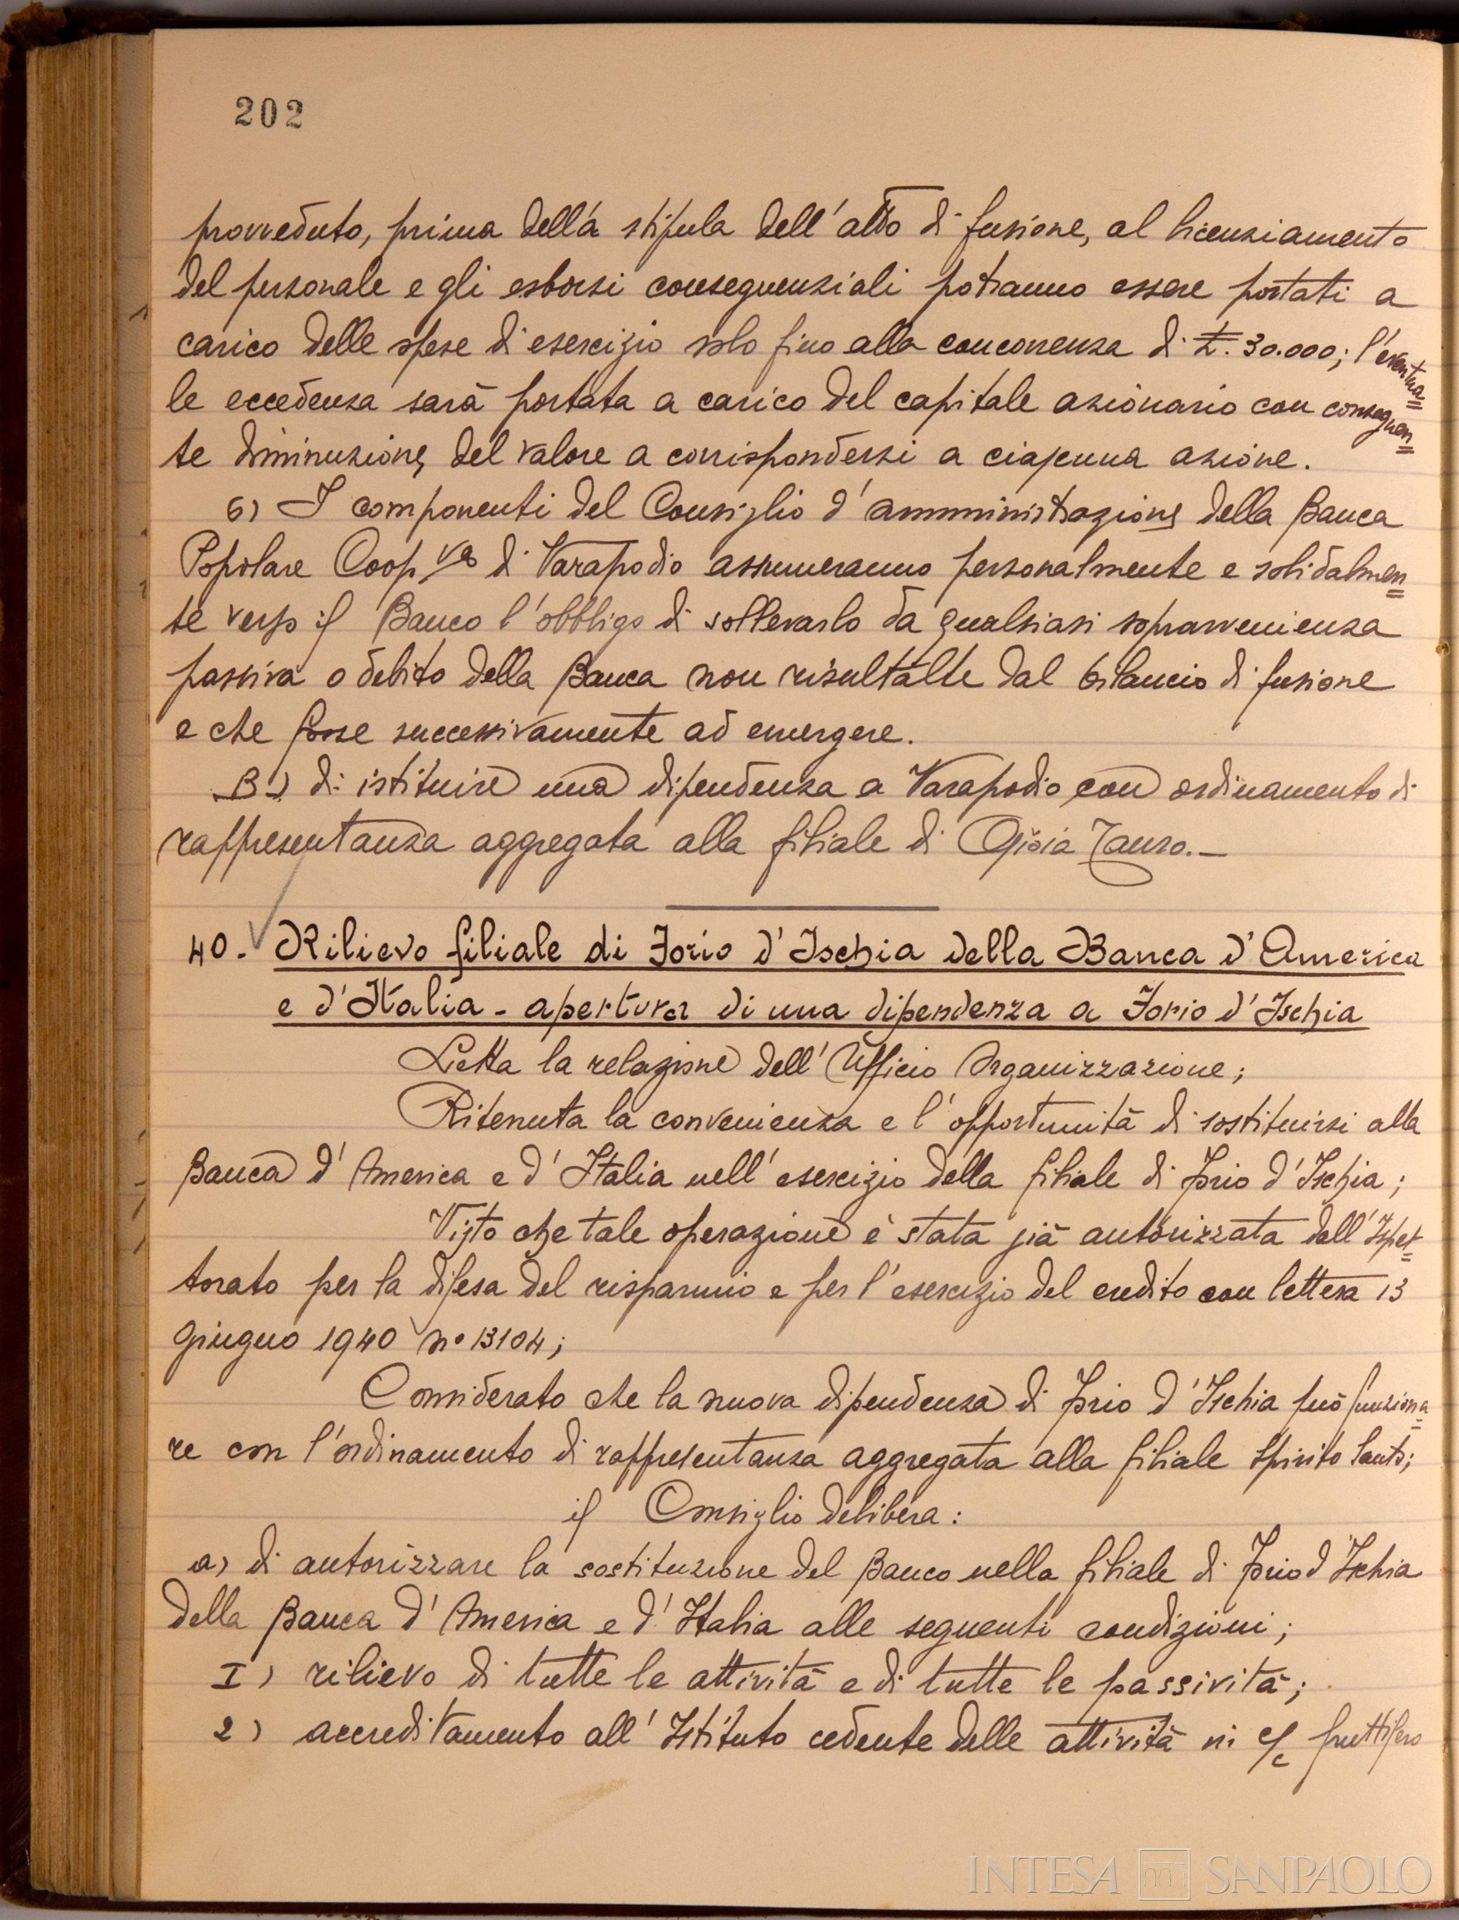 202
provveduto, prima della stipula dell'atto di fusione, al licenziamento
del personale e gli esborsi conseguenziali potranno essere portati a
carico delle spese di esercizio solo fino alla concorrenza di £. 30.000; l'eventua=
le eccedenza sarà portata a carico del capitale azionario con conseguen=
te diminuzione del valore a corrispondersi a ciascuna azione.
6) I componenti del Consiglio d'amministrazione della Banca
Popolare Coop.va di Varapodio assumeranno personalmente e solidalmen=
te verso il Banco l'obbligo di sollevarlo da qualsiasi sopravvenienza
passiva o debito della Banca non risultante dal bilancio di fusione
e che fosse successivamente ad emergere.
B) di istituire una dipendenza a Varapodio con ordinamento di
rappresentanza aggregata alla filiale di Gioia Tauro.—
40. Rilievo filiale di Forio d'Ischia della Banca d'America
e d'Italia - apertura di una dipendenza a Forio d'Ischia
Letta la relazione dell'Ufficio Organizzazione;
Ritenuta la convenienza e l'opportunità di sostituirsi alla
Banca d'America e d'Italia nell'esercizio della filiale di Forio d'Ischia;
Visto che tale operazione è stata già autorizzata dall'Ispet=
torato per la difesa del risparmio e per l'esercizio del credito con lettera 13
giugno 1940 n° 13104;
Considerato che la nuova dipendenza di Forio d'Ischia può funziona=
re con l'ordinamento di rappresentanza aggregata alla filiale Spirito Santo;
il Consiglio delibera:
a) di autorizzare la sostituzione del Banco nella filiale di Forio d'Ischia
della Banca d'America e d'Italia alle seguenti condizioni;
I) rilievo di tutte le attività e di tutte le passività;
2) accreditamento all'Istituto cedente delle attività in c/c fruttifero
INTESA SANPAOLO